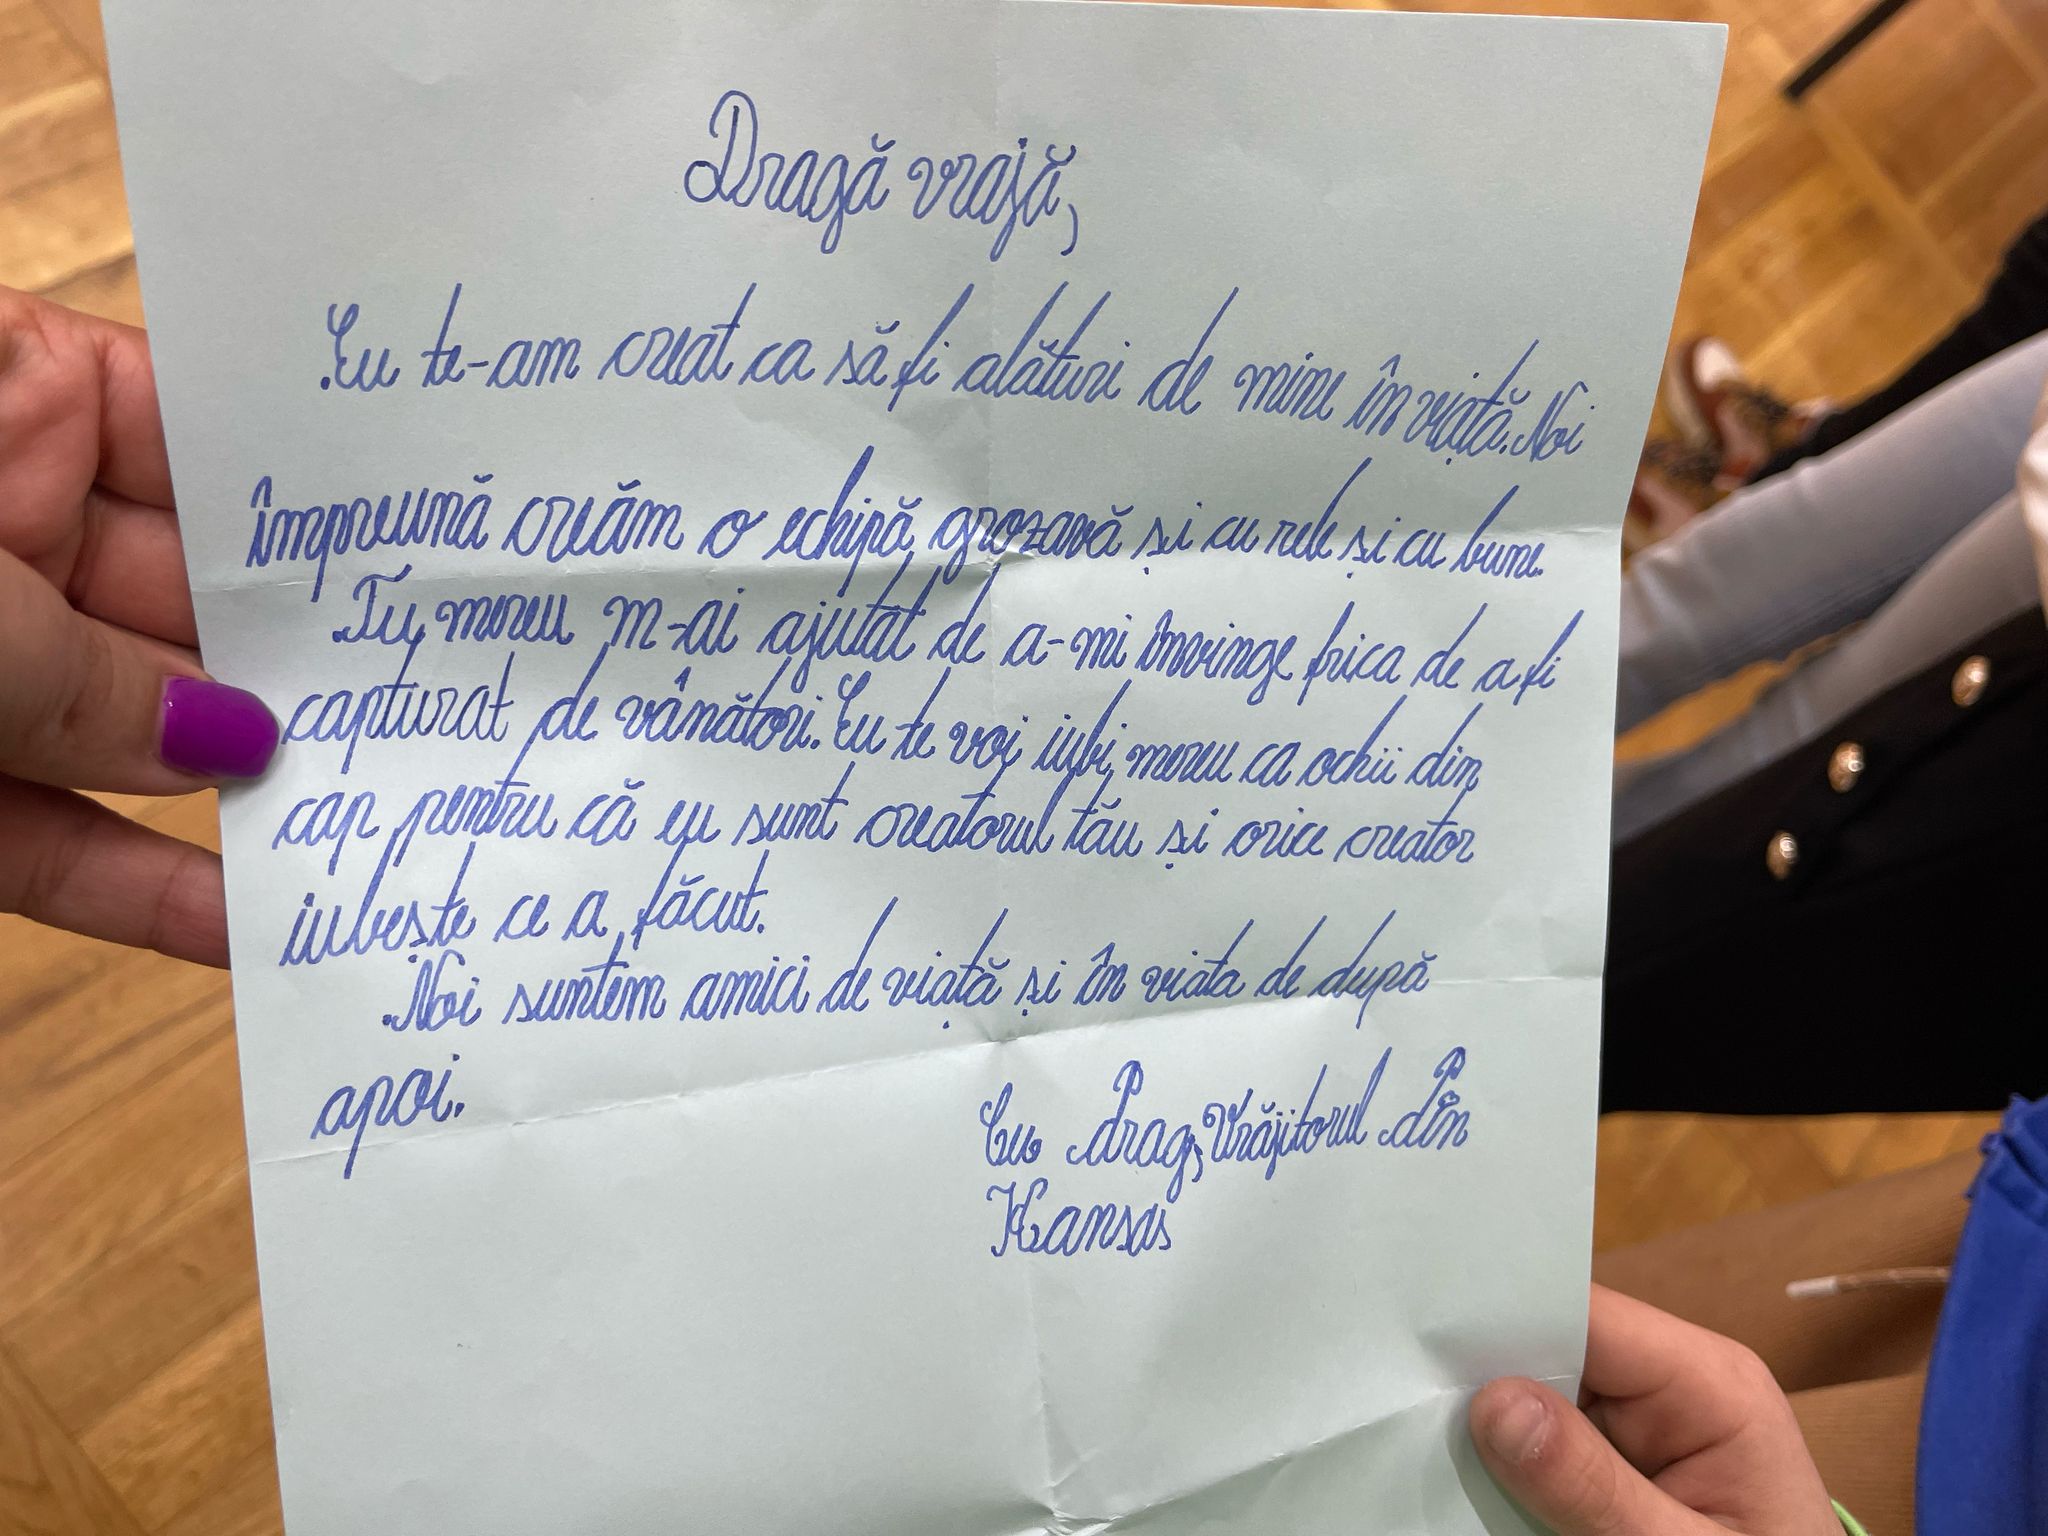 Dragă vrajă,
Eu te-am creat ca să fi alături de mine în viață. Noi
împreună creăm o echipă grozavă și cu rele și cu bune.
Tu mereu m-ai ajutat de a-mi învinge frica de a fi
capturat de vânători. Eu te voi iubi mereu ca ochii din
cap pentru că eu sunt creatorul tău și orice creator
iubește ce a făcut.
Noi suntem amici de viață și în viata de după
apoi.
Cu drag, Vrăjitorul din
Kansas